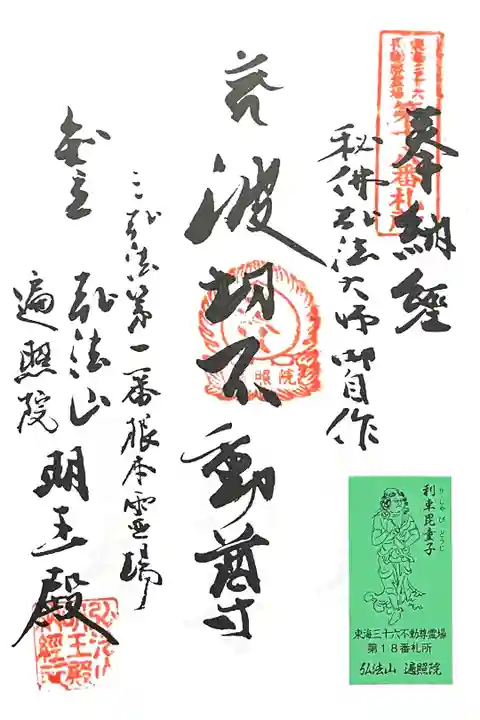 東海三十六
不動尊霊場
第十八番札所
奉納經
秘佛弘法大師御自作
波切不動尊
照院
三弘法第一番根本霊場
弘法山 明王殿
遍照院
利車毘童子
りしゃびどうじ
東海三十六不動尊霊場
第18番札所
弘法山 遍照院